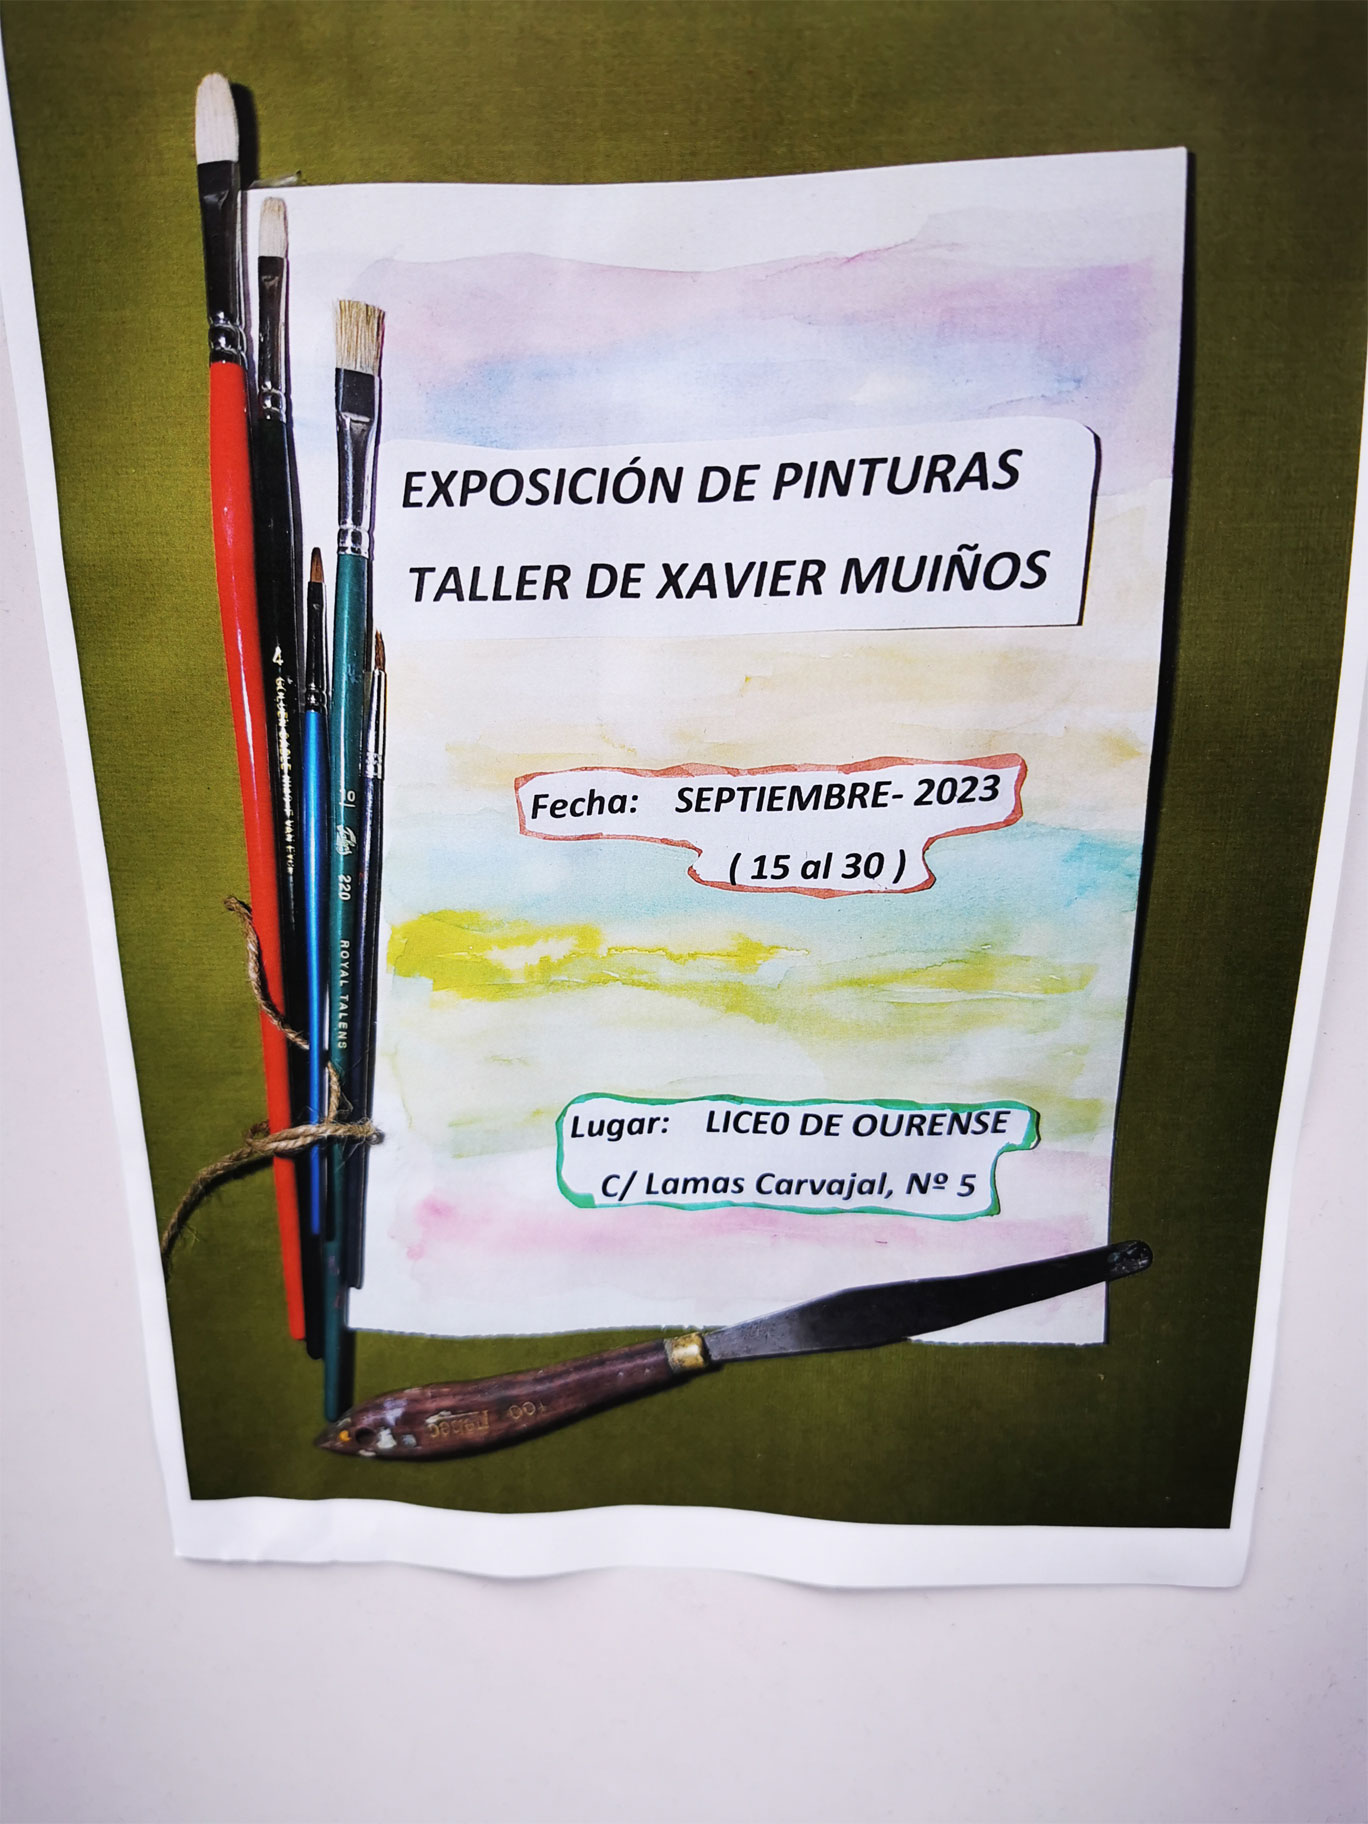 EXPOSICIÓN DE PINTURAS
TALLER DE XAVIER MUIÑOS
Fecha: SEPTIEMBRE- 2023
( 15 al 30 )
Lugar: LICE0 DE OURENSE
C/ Lamas Carvajal, Nº 5
4 GOLDEN SABLE
10
220
ROYAL TALENS
100